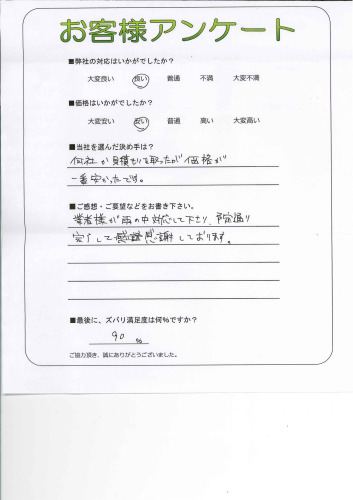 お客様アンケート
■弊社の対応はいかがでしたか?
大変良い 良い 普通 不満 大変不満
■価格はいかがでしたか?
大変安い 安い 普通 高い 大変高い
■当社を選んだ決め手は?
何社か見積もりを取ったが価格が
一番安かったです。
■ご感想・ご要望などをお書き下さい。
業者様が雨の中対応して下さり、予定通り
完了して感謝しております。
■最後に、ズバリ満足度は何%ですか?
90 %
ご協力頂き、誠にありがとうございました。